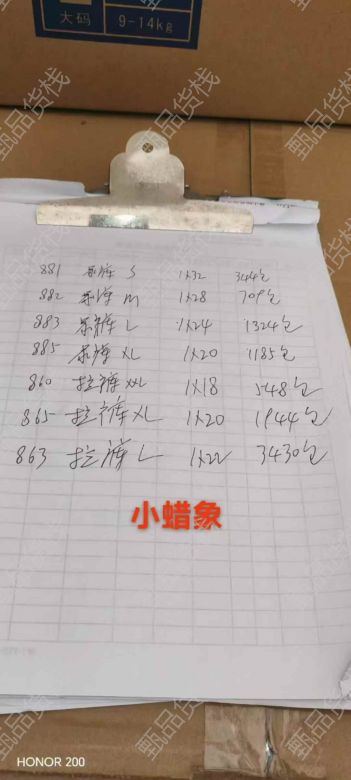 大码 9-14kg
881 尿裤 S 1X32 344包
882 尿裤 M 1X28 709包
883 尿裤 L 1X24 1324包
885 尿裤 XL 1X20 1185包
860 拉裤 XXL 1X18 548包
865 拉裤 XL 1X20 1944包
863 拉裤 L 1X22 3430包
小蜡象
HONOR 200
甄品货栈